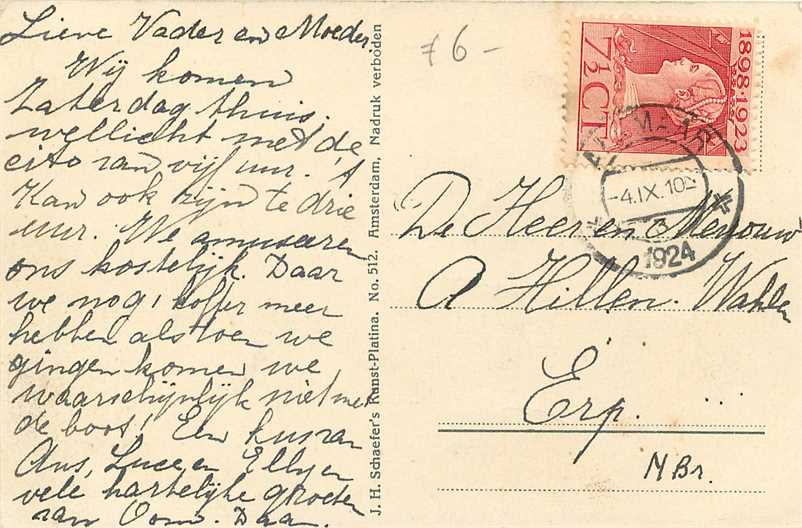 Lieve Vader en Moeder
Wij komen
Zaterdag thuis.
wellicht met de
cito van vijf uur. 't
Kan ook zijn te drie
uur. We amuseeren
ons kostelijk. Daar
we nog 1 koffer meer
hebben als toen we
gingen komen we,
waarschijnlijk niet met
de boot! Een kus van
Ans, Luce en Elly en
vele hartelijke groeten
van Oom. Daan.
J. H. Schaefer's Kunst-Platina. No. 512. Amsterdam, Nadruk verboden
76-
1898·1923
7½ CT
ALKMAAR
-4.IX.10
3
1924
De Heer en Mevrouw
A Hillen. Wahlen
Erp.
N Br.